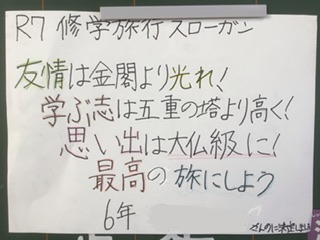 R7 修学旅行 スローガン
友情は金閣より光れ!
学ぶ志は五重の塔より高く!
思い出は大仏級に!
最高の旅にしよう
6年